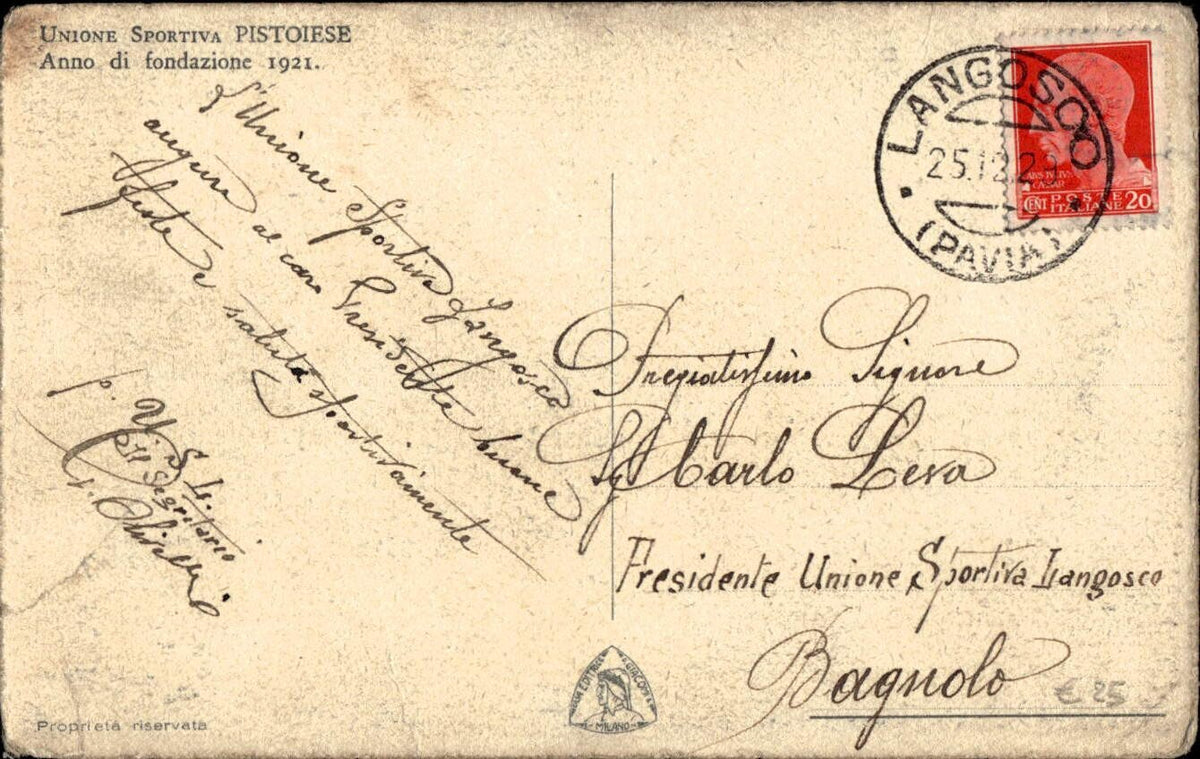 UNIONE SPORTIVA PISTOIESE
Anno di fondazione 1921.
L'Unione Sportiva Langosco
augura al caro Presidente buone
feste e saluta sportivamente
p. U. S. L.
Il Segretario
LANGOSCO
25.12.2
(PAVIA)
CAESAR
CENT POSTE ITALIANE 20
Pregiatissimo Signore
Sig Carlo Leva
Presidente Unione Sportiva Langosco
Bagnolo
€ 25
MILANO
Proprietà riservata